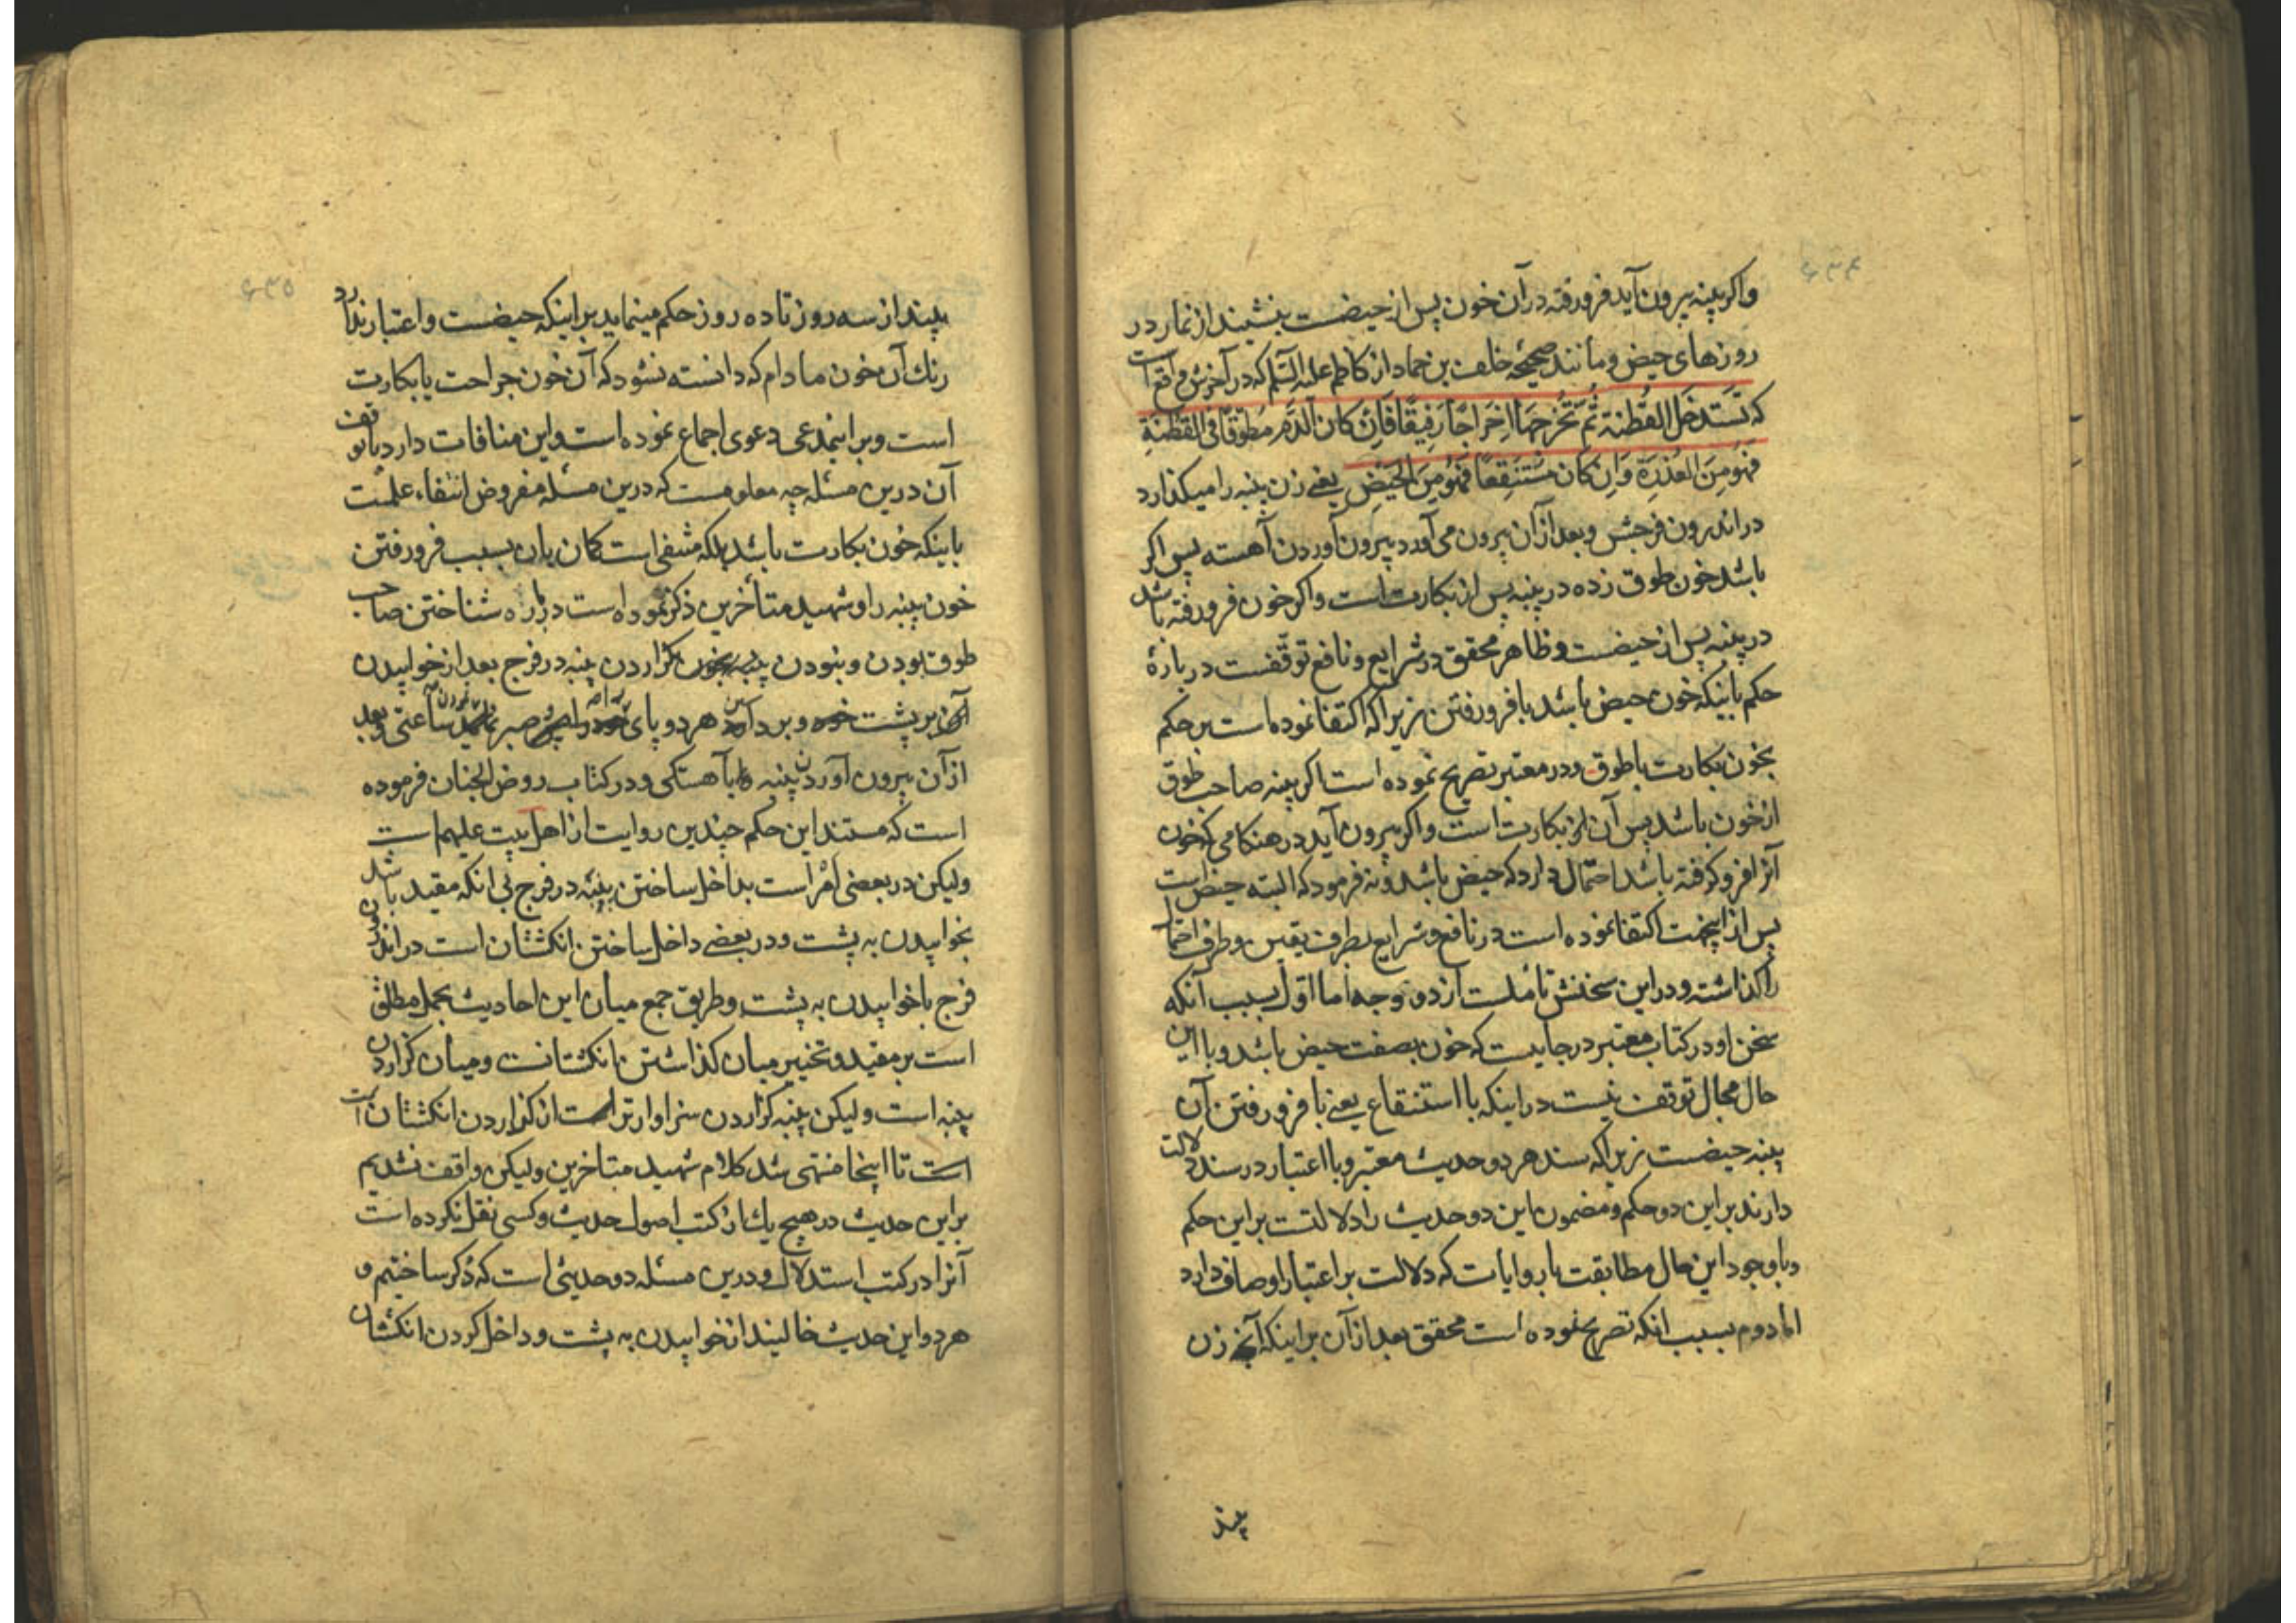 واکر پنبه بیرون آید فرو رفته در آن خون پس از حیضست بنشیند از نماز در
روزهای حیض و مانند صحیحهٔ خلف بن حماد از کاظم علیه السّلم که در آخرش واقع است
که تَستَدخل القُطنة ثُمّ تُخرجهَا اِخرَاجًا رَفیقًا فَاِن کان الدّم مُطوّقًا فی القُطنَةِ
فَهُو مِنَ العُذرَة وَاِن کان مُستَنقِعًا فَهُو مِنَ الحَیضِ یعنے زن پنبه را میکذارد
در اندرون فرجش و بعد از آن بیرون می آورد بیرون آوردن آهسته پس اکر
باشد خون طوق زده در پنبه پس از بکارت است و اکر خون فرو رفته باشد
در پنبه پس از حیضست و ظاهر محقق در شرایع و نافع توقّفست در بارهٔ
حکم باینکه خون حیض باشد با فرو رفتن زیرا که اکتفا نموده است بر حکم
بخون بکارت با طوق و در معتبر تصریح نموده است اکر پنبه صاحب طوق
از خون باشد پس آن از بکارت است و اکر بیرون آید در هنکامی که خون
آنرا فرو کرفته باشد احتمال دارد که حیض باشد و نه فرمود که البته حیض است
پس از اینجهت اکتفا نموده است در نافع و شرایع بطرف یقین و طرف احتمال
را کذاشته و در این سخنش تاملست از دو وجه اما اوّل بسبب آنکه
سخن او در کتاب معتبر در جاییست که خون بصفت حیض باشد و با این
حال مجال توقف نیست در اینکه با استنقاع یعنے با فرو رفتن آن
پنبه حیضست زیرا که سند هر دو حدیث معتبر و با اعتبار در سند دلالت
دارند بر این دو حکم و مضمون این دو حدیث را دلالتست بر این حکم
و با وجود این حال مطابقت با روایات که دلالت بر اعتبار اوصاف دارد
اما دوم بسبب انکه تصریح نموده است محقق بعد از آن بر اینکه آنچه زن
بیند
بیند از سه روز تا ده روز حکم مینماید بر اینکه حیضست و اعتبار ندارد
رنك آن خون مادام که دانسته نشود که آن خون جراحت یا بکارت
است و بر اینمدعی دعوی اجماع نموده است و این منافات دارد با توقف
آن درین مسئله چه معلومست که درین مسئله مفروض انتفاء علمست
باینکه خون بکارت باشد بلکه منتفی است کمان بان بسبب فرو رفتن
خون پنبه را و شهید متأخرین ذکر نموده است در باره شناختن صاحب
طوق بودن و نبودن کزاردن پنبه در فرج بعد از خوابیدن
بر پشت و برداشتن هر دو پای را و صبر نمودن ساعتی و بعد
از آن بیرون آوردن پنبه بآهستکی و در کتاب روض الجنان فرموده
است که مستند این حکم چندین روایت از اهل بیت علیهم است
ولیکن در بعضی امر است بداخل ساختن پنبه در فرج بی انکه مقید باشد
بخوابیدن به پشت و در بعضے داخل ساختن انکشتان است در اندرون
فرج با خوابیدن به پشت و طریق جمع میان این احادیث بحمل مطلق
است بر مقید و تخییر میان کذاشتن انکشتانست و میان کزاردن
پنبه است ولیکن پنبه کزاردن سزاوارتر است از کذاردن انکشتان است
است تا اینجا منتهی شد کلام شهید متاخرین ولیکن واقف نشدیم
بر این حدیث در هیچ یك از کتب اصول حدیث و کسی نقل نکرده است
آنرا در کتب استدلال و درین مسئله دو حدیثی است که ذکر ساختیم و
هر دو این حدیث خالیند از خوابیدن به پشت و داخل کردن انکشتان